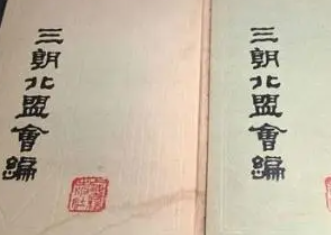 三朝北盟會編
三朝北盟會編